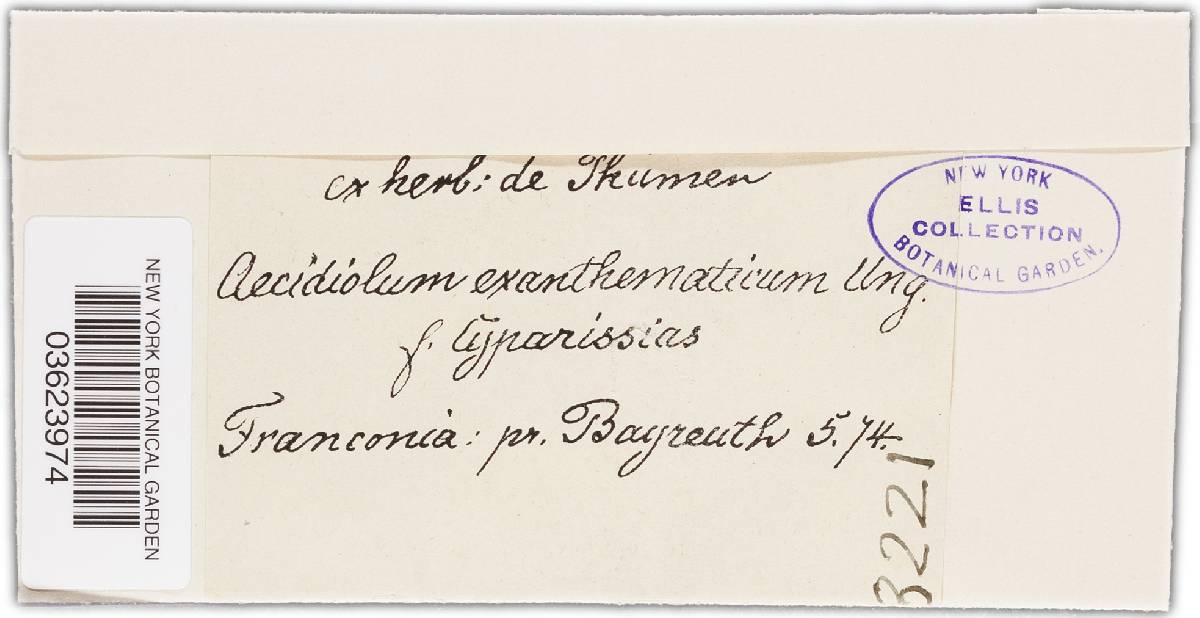 ex herb: de Thumen
NEW YORK
ELLIS
COLLECTION
BOTANICAL GARDEN.
Aecidiolum exanthematicum Ung.
f. Cyparissias
Franconia: pr. Bayreuth 5.74.
3221
NEW YORK BOTANICAL GARDEN
03623974